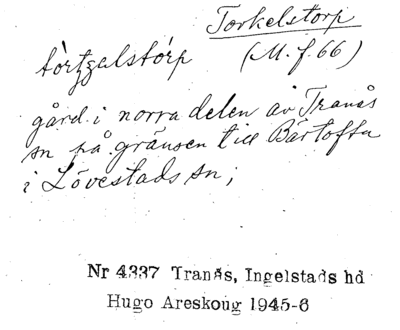 Torkelstorp
tòrtzalstórp (M.f.66)
gård i norra delen av Tranås
sn på gränsen till Bärtofta
i Lövestads sn;
Nr 4337 Tranås, Ingelstads hd
Hugo Areskoug 1945-6